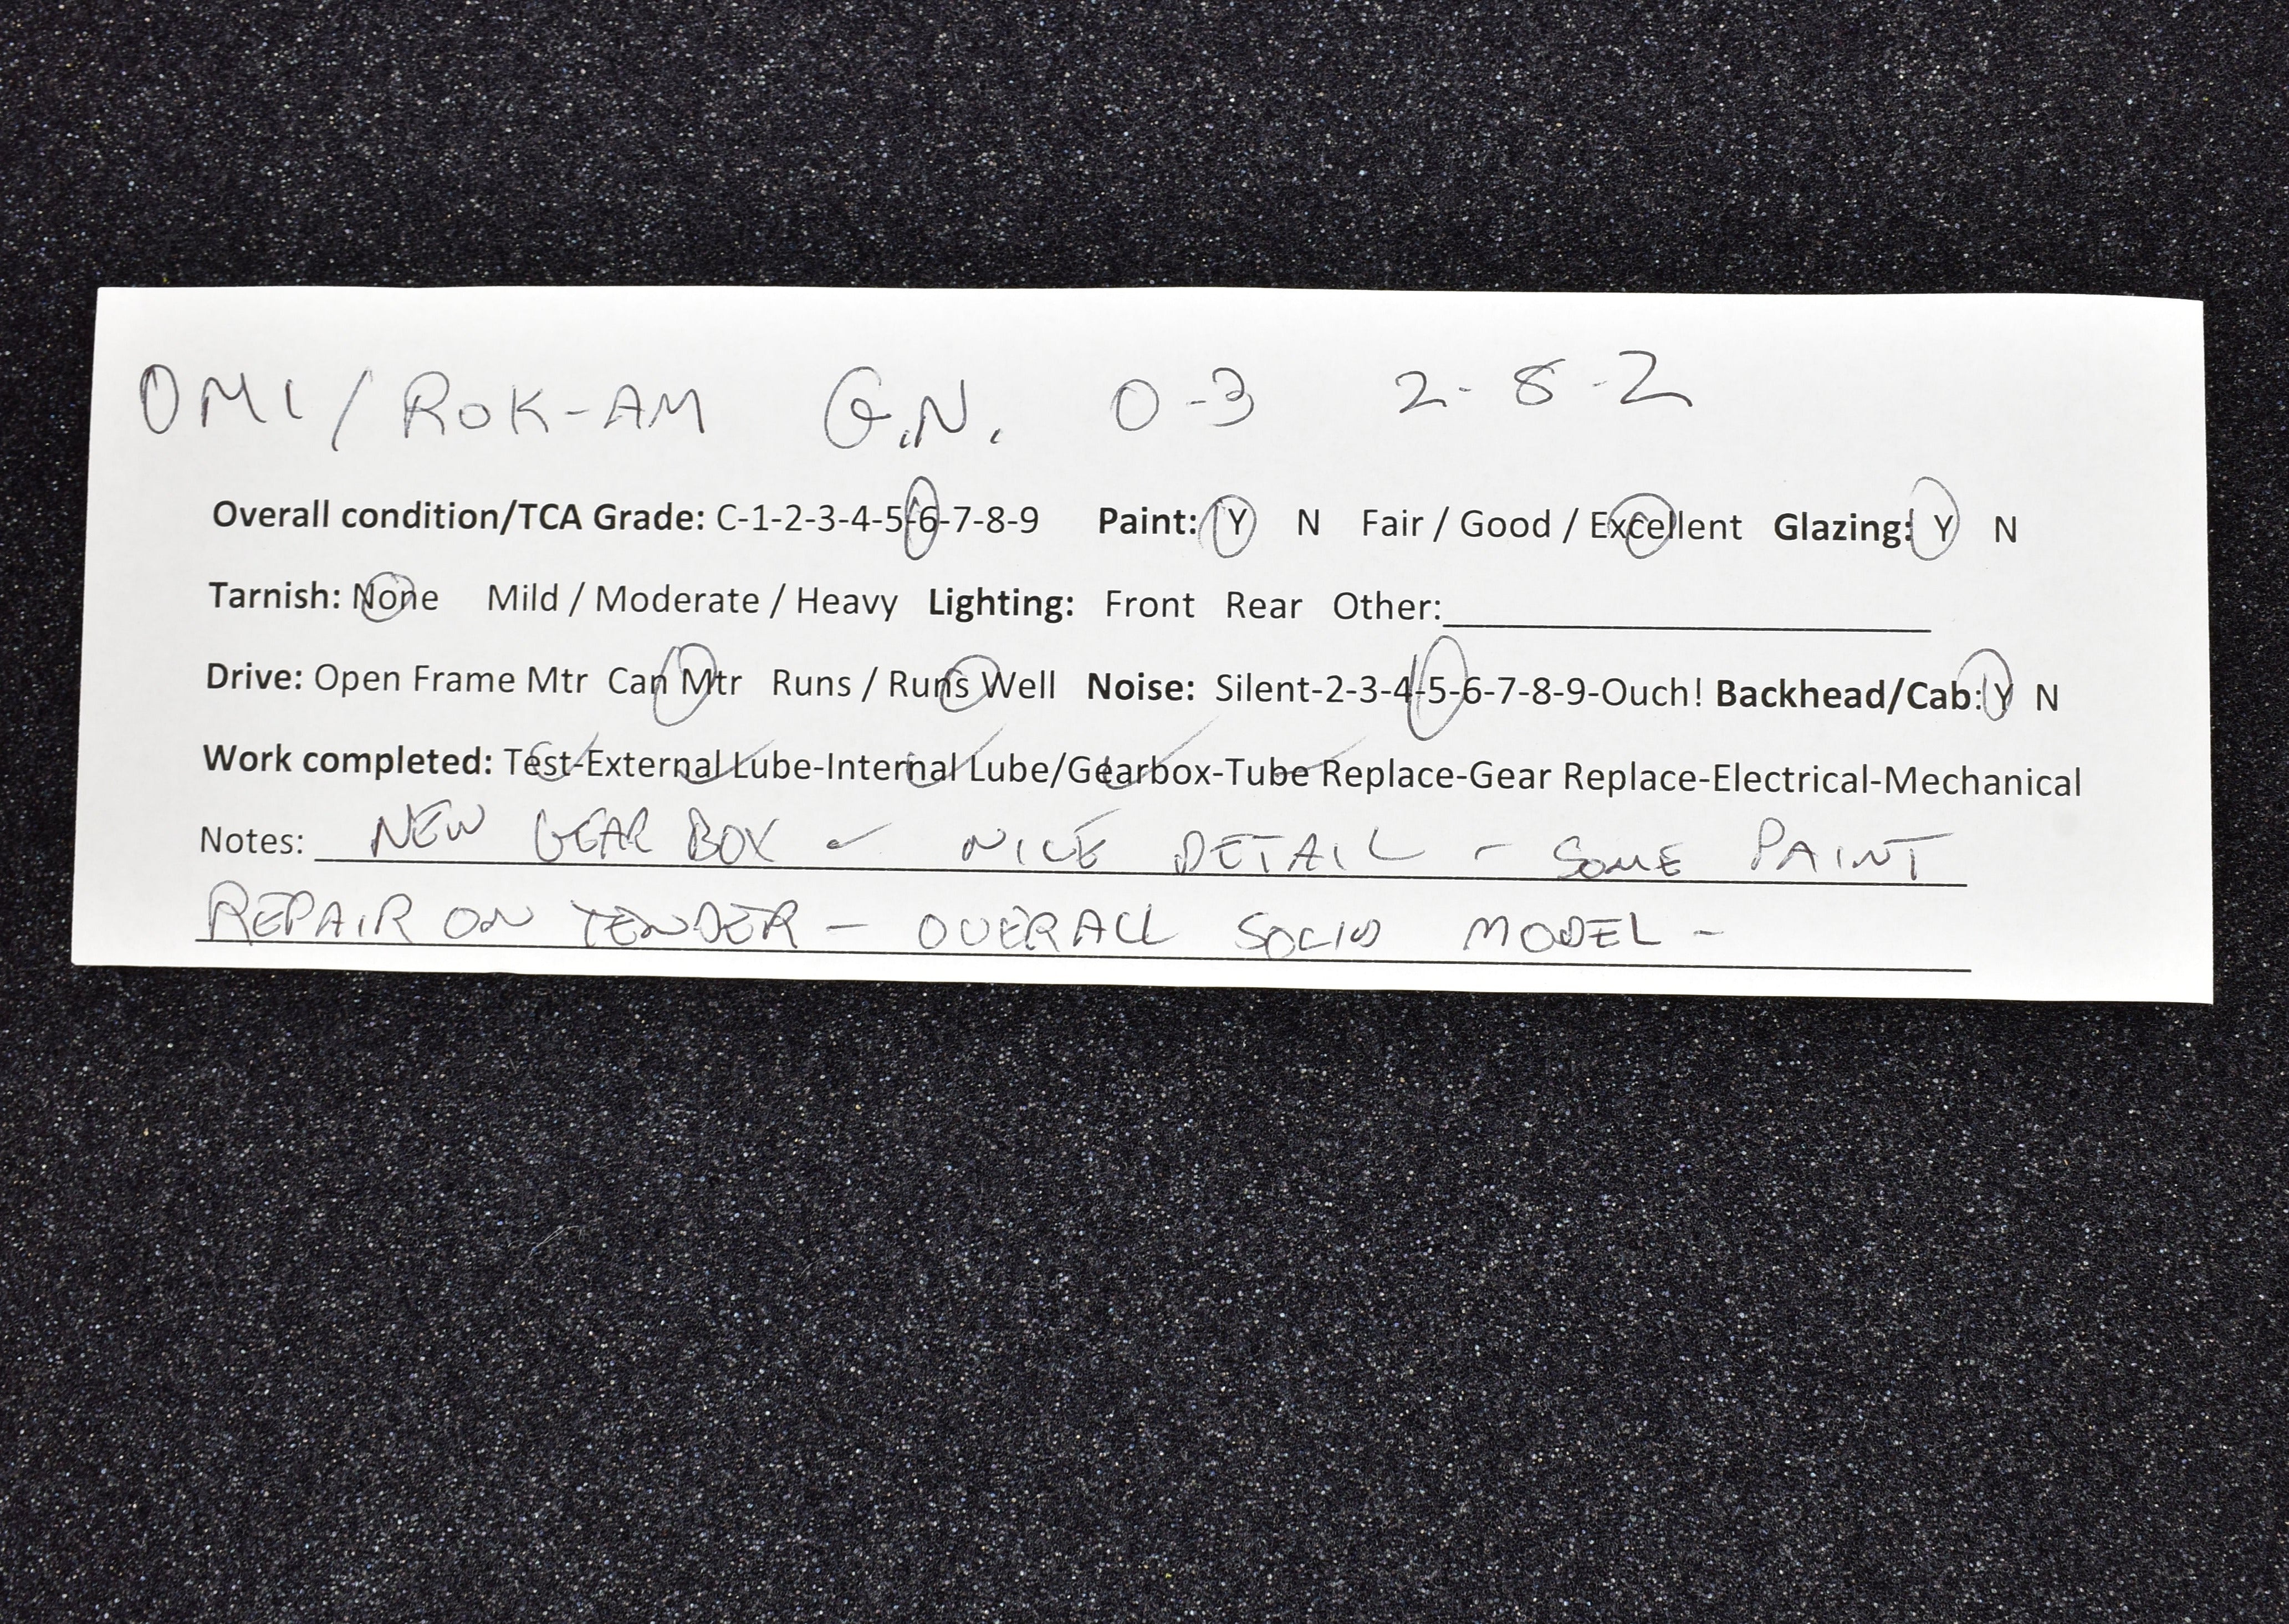 OMI/ROK-AM G.N. O-3 2-8-2
Overall condition/TCA Grade: C-1-2-3-4-5-6-7-8-9 Paint: Y N Fair / Good / Excellent Glazing: Y N
Tarnish: None Mild / Moderate / Heavy Lighting: Front Rear Other:
Drive: Open Frame Mtr Can Mtr Runs / Runs Well Noise: Silent-2-3-4-5-6-7-8-9-Ouch! Backhead/Cab: Y N
Work completed: Test-External Lube-Internal Lube/Gearbox-Tube Replace-Gear Replace-Electrical-Mechanical
Notes: NEW GEAR BOX ✓ NICE DETAIL - SOME PAINT
REPAIR ON TENDER - OVERALL SOLID MODEL -